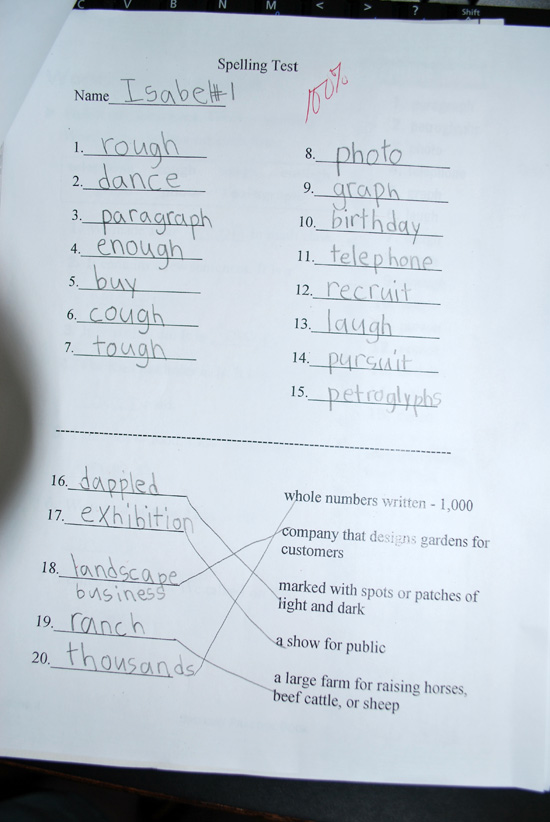 C V B N M < > ? Shift
Spelling Test
Name Isabel #1
100%
1. rough
2. dance
3. paragraph
4. enough
5. buy
6. cough
7. tough
8. photo
9. graph
10. birthday
11. telephone
12. recruit
13. laugh
14. pursuit
15. petroglyphs
16. dappled
17. exhibition
18. landscape
business
19. ranch
20. thousands
whole numbers written - 1,000
company that designs gardens for
customers
marked with spots or patches of
light and dark
a show for public
a large farm for raising horses,
beef cattle, or sheep